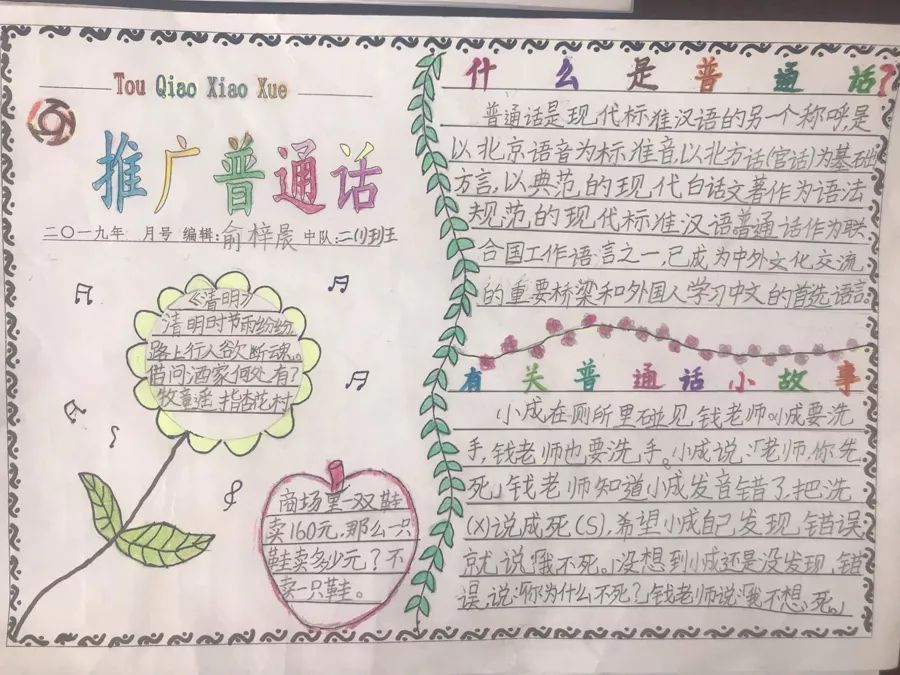 Tou Qiao Xiao Xue
推广普通话
二〇一九年 月号 编辑:俞梓晨 中队:二(1)班
《清明》
清明时节雨纷纷
路上行人欲断魂。
借问酒家何处有?
牧童遥指杏花村
商场里一双鞋
卖160元,那么一只
鞋卖多少元?不
卖一只鞋。
什么是普通话?
普通话是现代标准汉语的另一个称呼,是
以北京语音为标准音,以北方话(官话)为基础
方言,以典范的现代白话文著作为语法
规范的现代标准汉语普通话作为联
合国工作语言之一,已成为中外文化交流
的重要桥梁和外国人学习中文的首选语言
有关普通话小故事
小成在厕所里碰见钱老师。小成要洗
手,钱老师也要洗手。小成说:「老师,你先
死」钱老师知道小成发音错了,把洗
(X)说成死(S),希望小成自己发现错误,
就说「我不死。」没想到小成还是没发现错
误,说:「你为什么不死?」钱老师说「我不想死。」